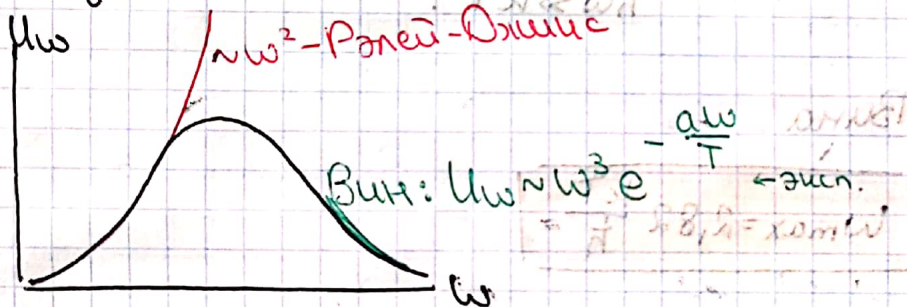 Uω
~ω² - Рэлей-Джинс
Вин: Uω ~ ω³ e^{-aω/T} ← эксп.
ω